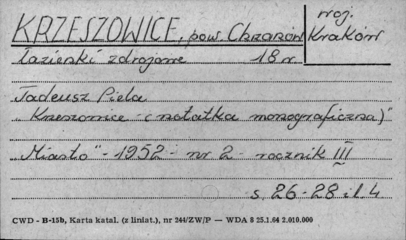 KRZESZOWICE, pow. Chrzanów
woj. Kraków
Łazienki zdrojowe 18 w.
Tadeusz Piela
„Krzeszowice - (notatka monograficzna)"
„Miasto" - 1952 - nr 2 - rocznik III
s. 26-28 il. 4
CWD - B-15b, Karta katal. (z liniat.), nr 244/ZW/P — WDA 8 25.1.64 2.010.000